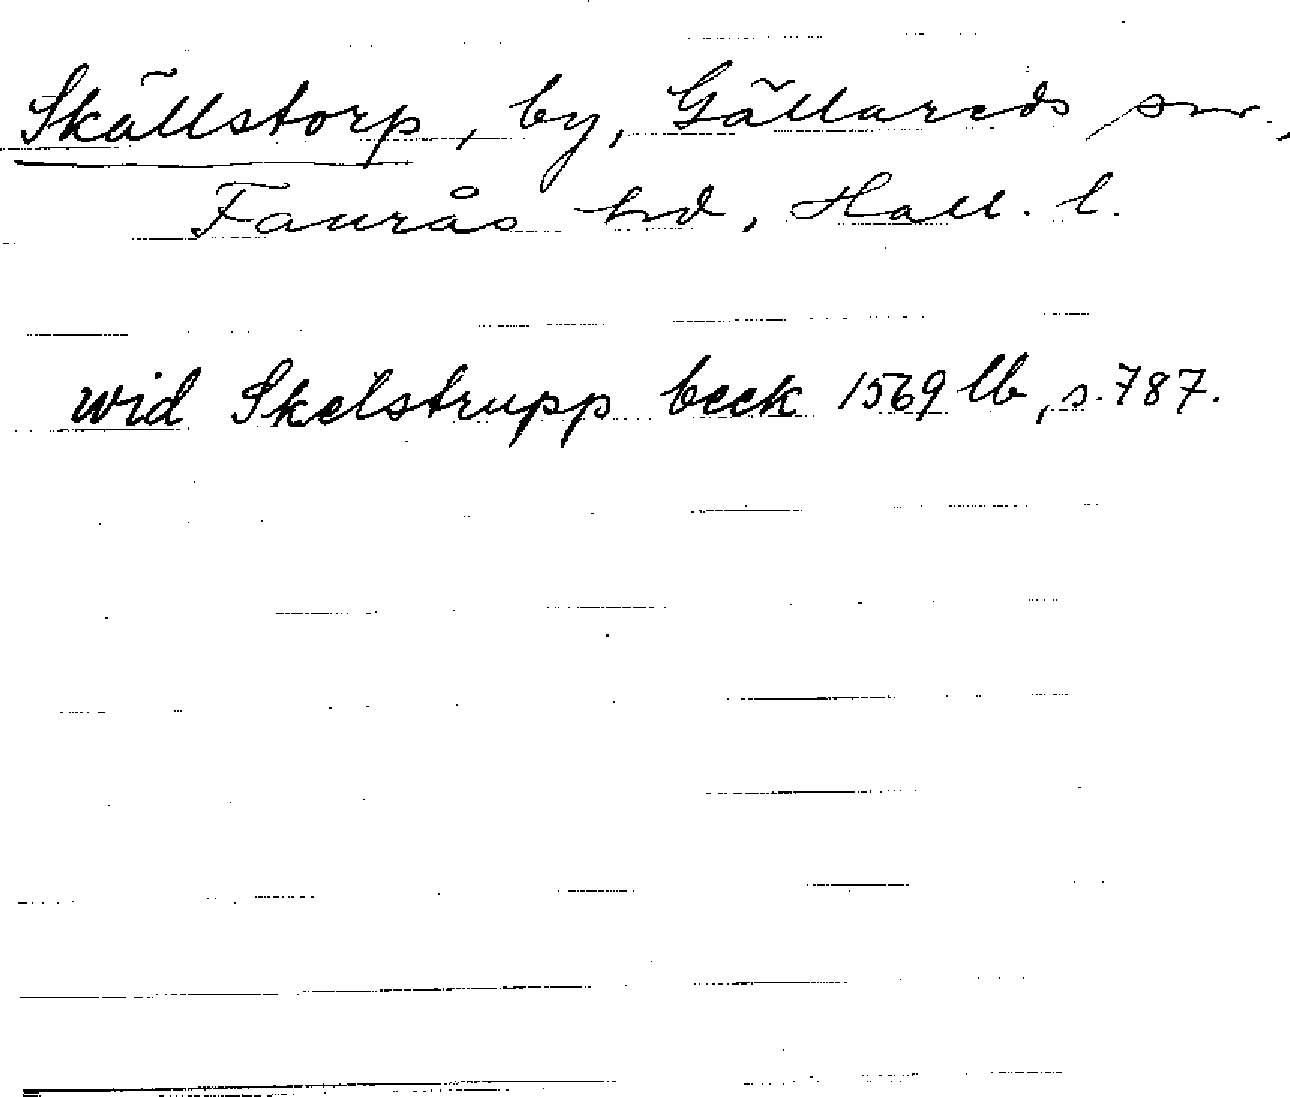 Skällstorp, by, Gällareds sn.,
Faurås hd, Hall. l.
wid Skelstrupp beck 1569 lb, s. 787.